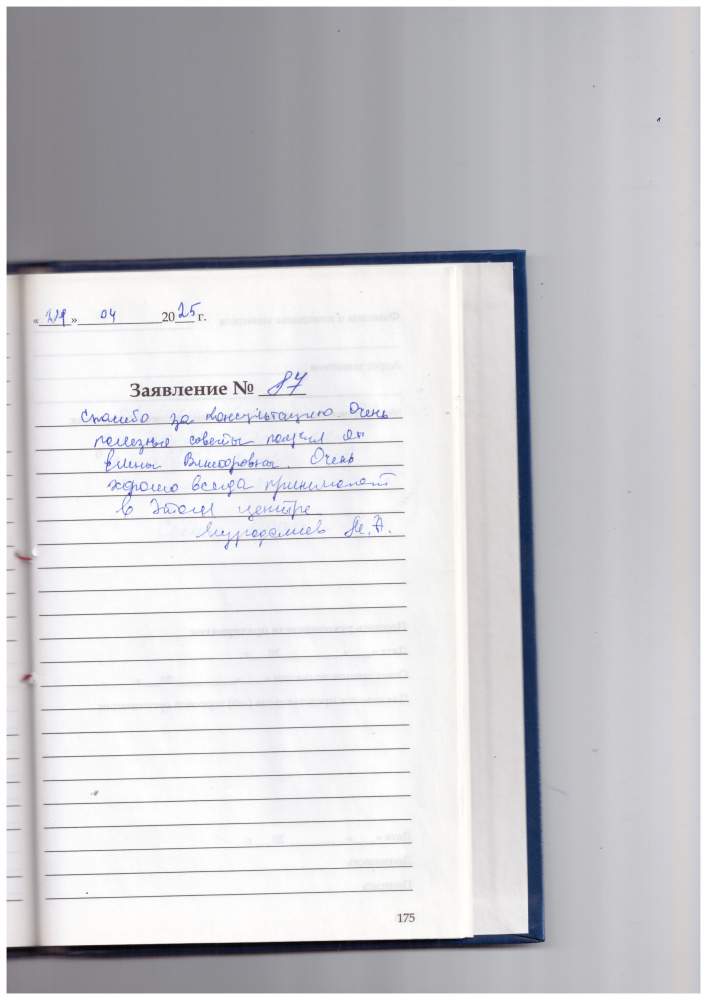 « 24 » 04 2025 г.
Заявление № 87
Спасибо за консультацию Очень
полезные советы получил от
Елены Викторовны. Очень
хорошо всегда принимают
в этом центре
А.
175